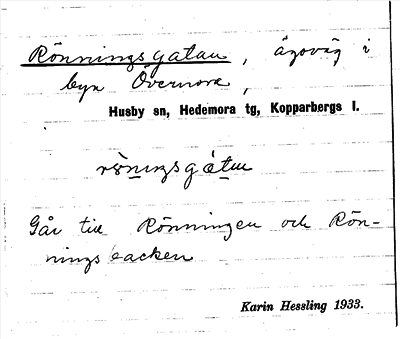 Rönningsgatan, ägoväg i
byn Övernora,
Husby sn, Hedemora tg, Kopparbergs l.
Går till Rönningen och Rön-
ningsbacken
Karin Hessling 1933.